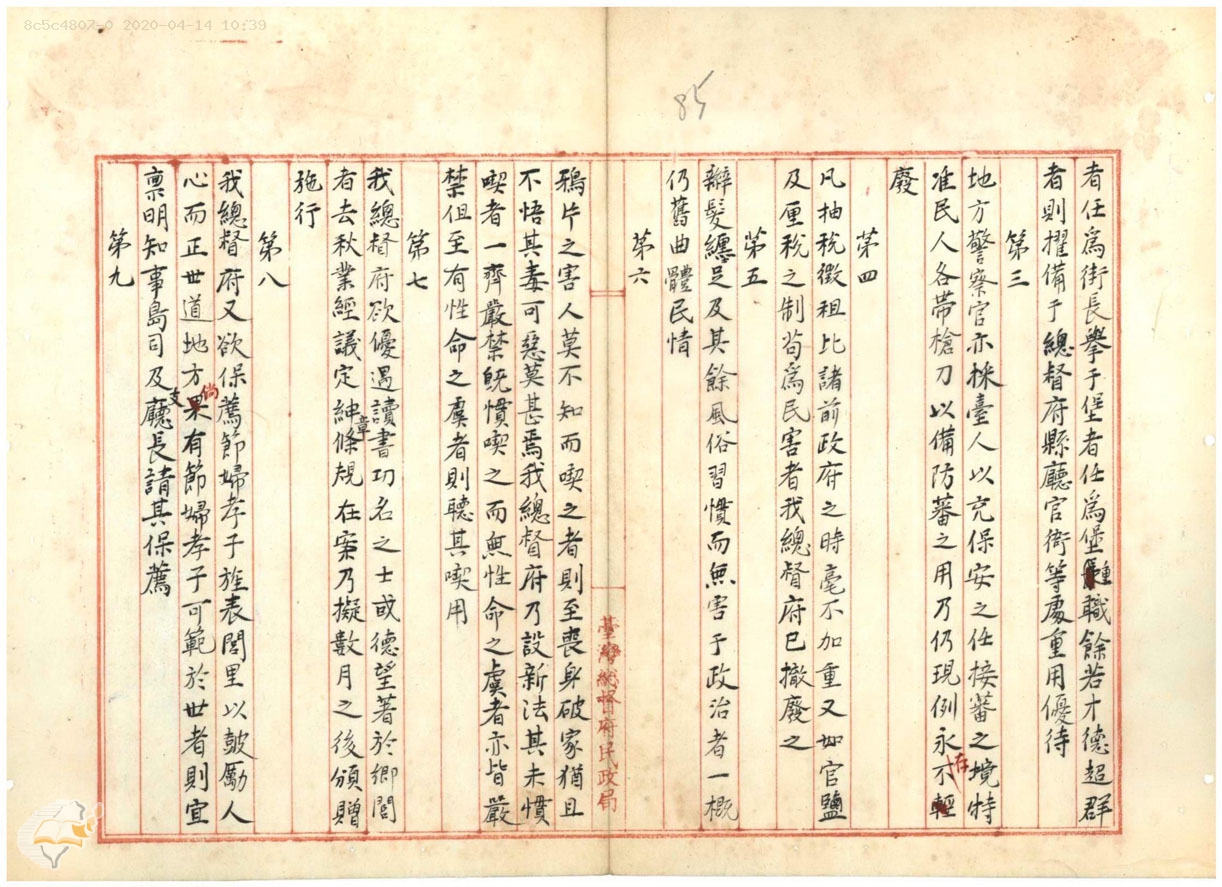 8c5c4807-0 2020-04-14 10:39
85
者任為街長擧于堡者任為堡董職餘若才德超群
者則擢備于總督府縣廳官衙等處重用優待
第三
地方警察官亦採臺人以充保安之任接蕃之境特
准民人各帶槍刀以備防蕃之用乃仍現例永不在輕
廢
第四
凡抽稅徵租比諸前政府之時毫不加重又如官鹽
及厘稅之制苟為民害者我總督府已撤廢之
第五
辮髮纏足及其餘風俗習慣而無害于政治者一概
仍舊曲體民情
第六
臺灣總督府民政局
鴉片之害人莫不知而喫之者則至喪身破家猶且
不悟其毒可惡莫甚焉我總督府乃設新法其未慣
喫者一齊嚴禁旣慣喫之而無性命之虞者亦皆嚴
禁但至有性命之虞者則聽其喫用
第七
我總督府欲優遇讀書功名之士或德望著於鄉閭
者去秋業經議定紳章條規在案乃擬數月之後頒贈
施行
第八
我總督府又欲保薦節婦孝子旌表閭里以鼓勵人
心而正世道地方倘果有節婦孝子可範於世者則宜
禀明知事島司及支廳長請其保薦
第九